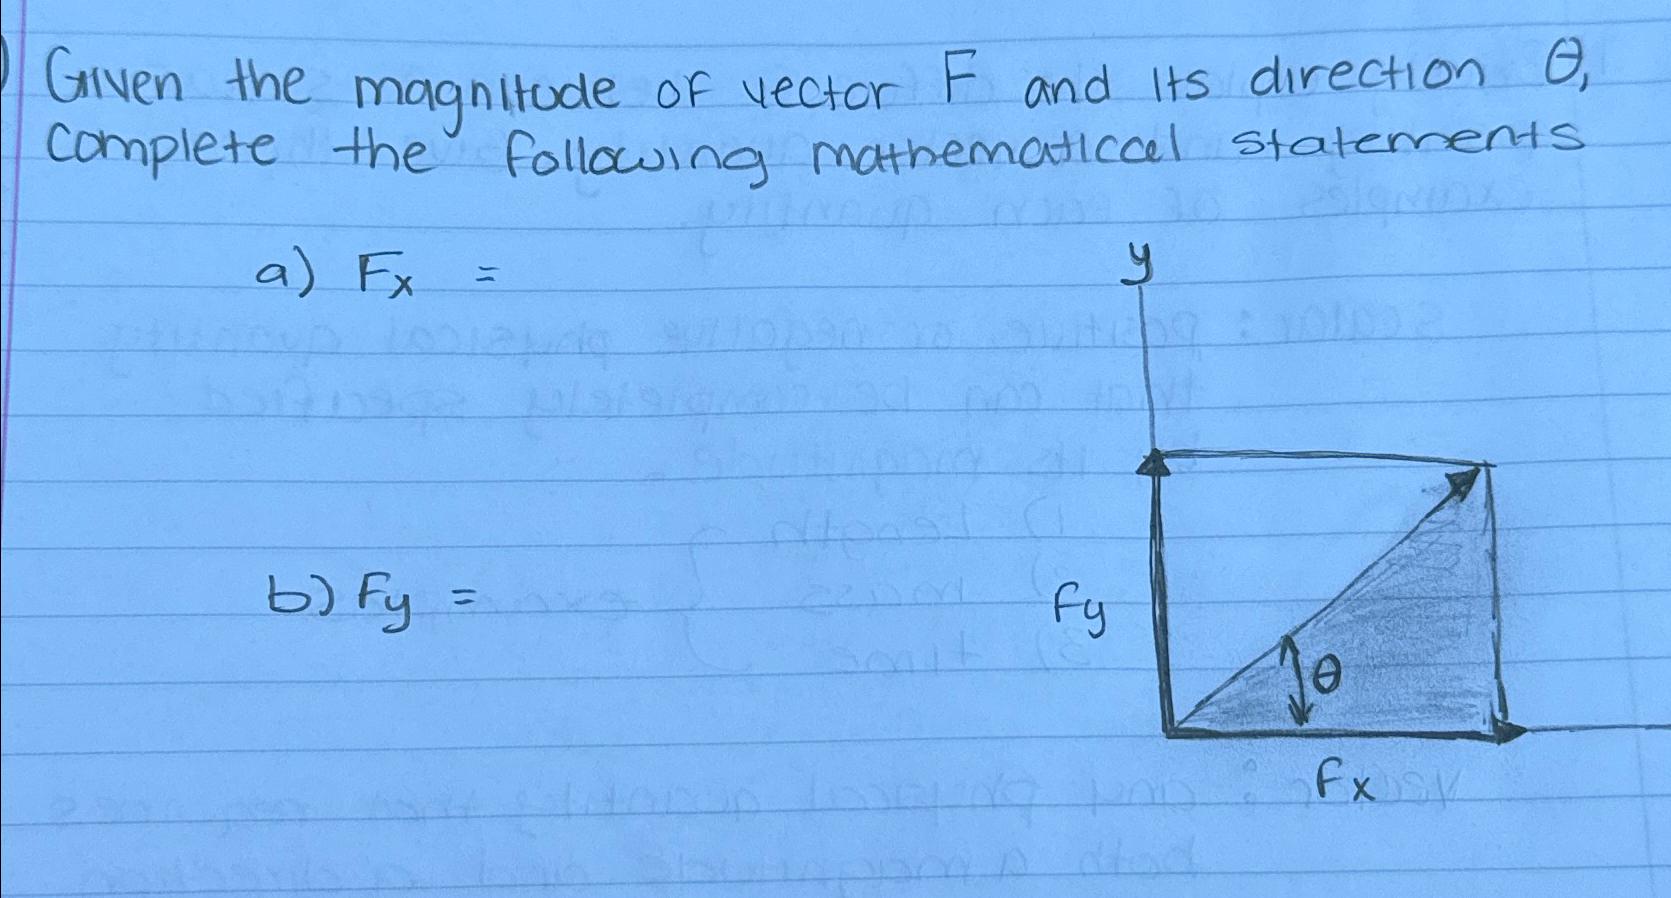 Given the magnitude of vector F and its direction θ,
complete the following mathematical statements
a) Fx =
y
b) Fy =
Fy
θ
Fx